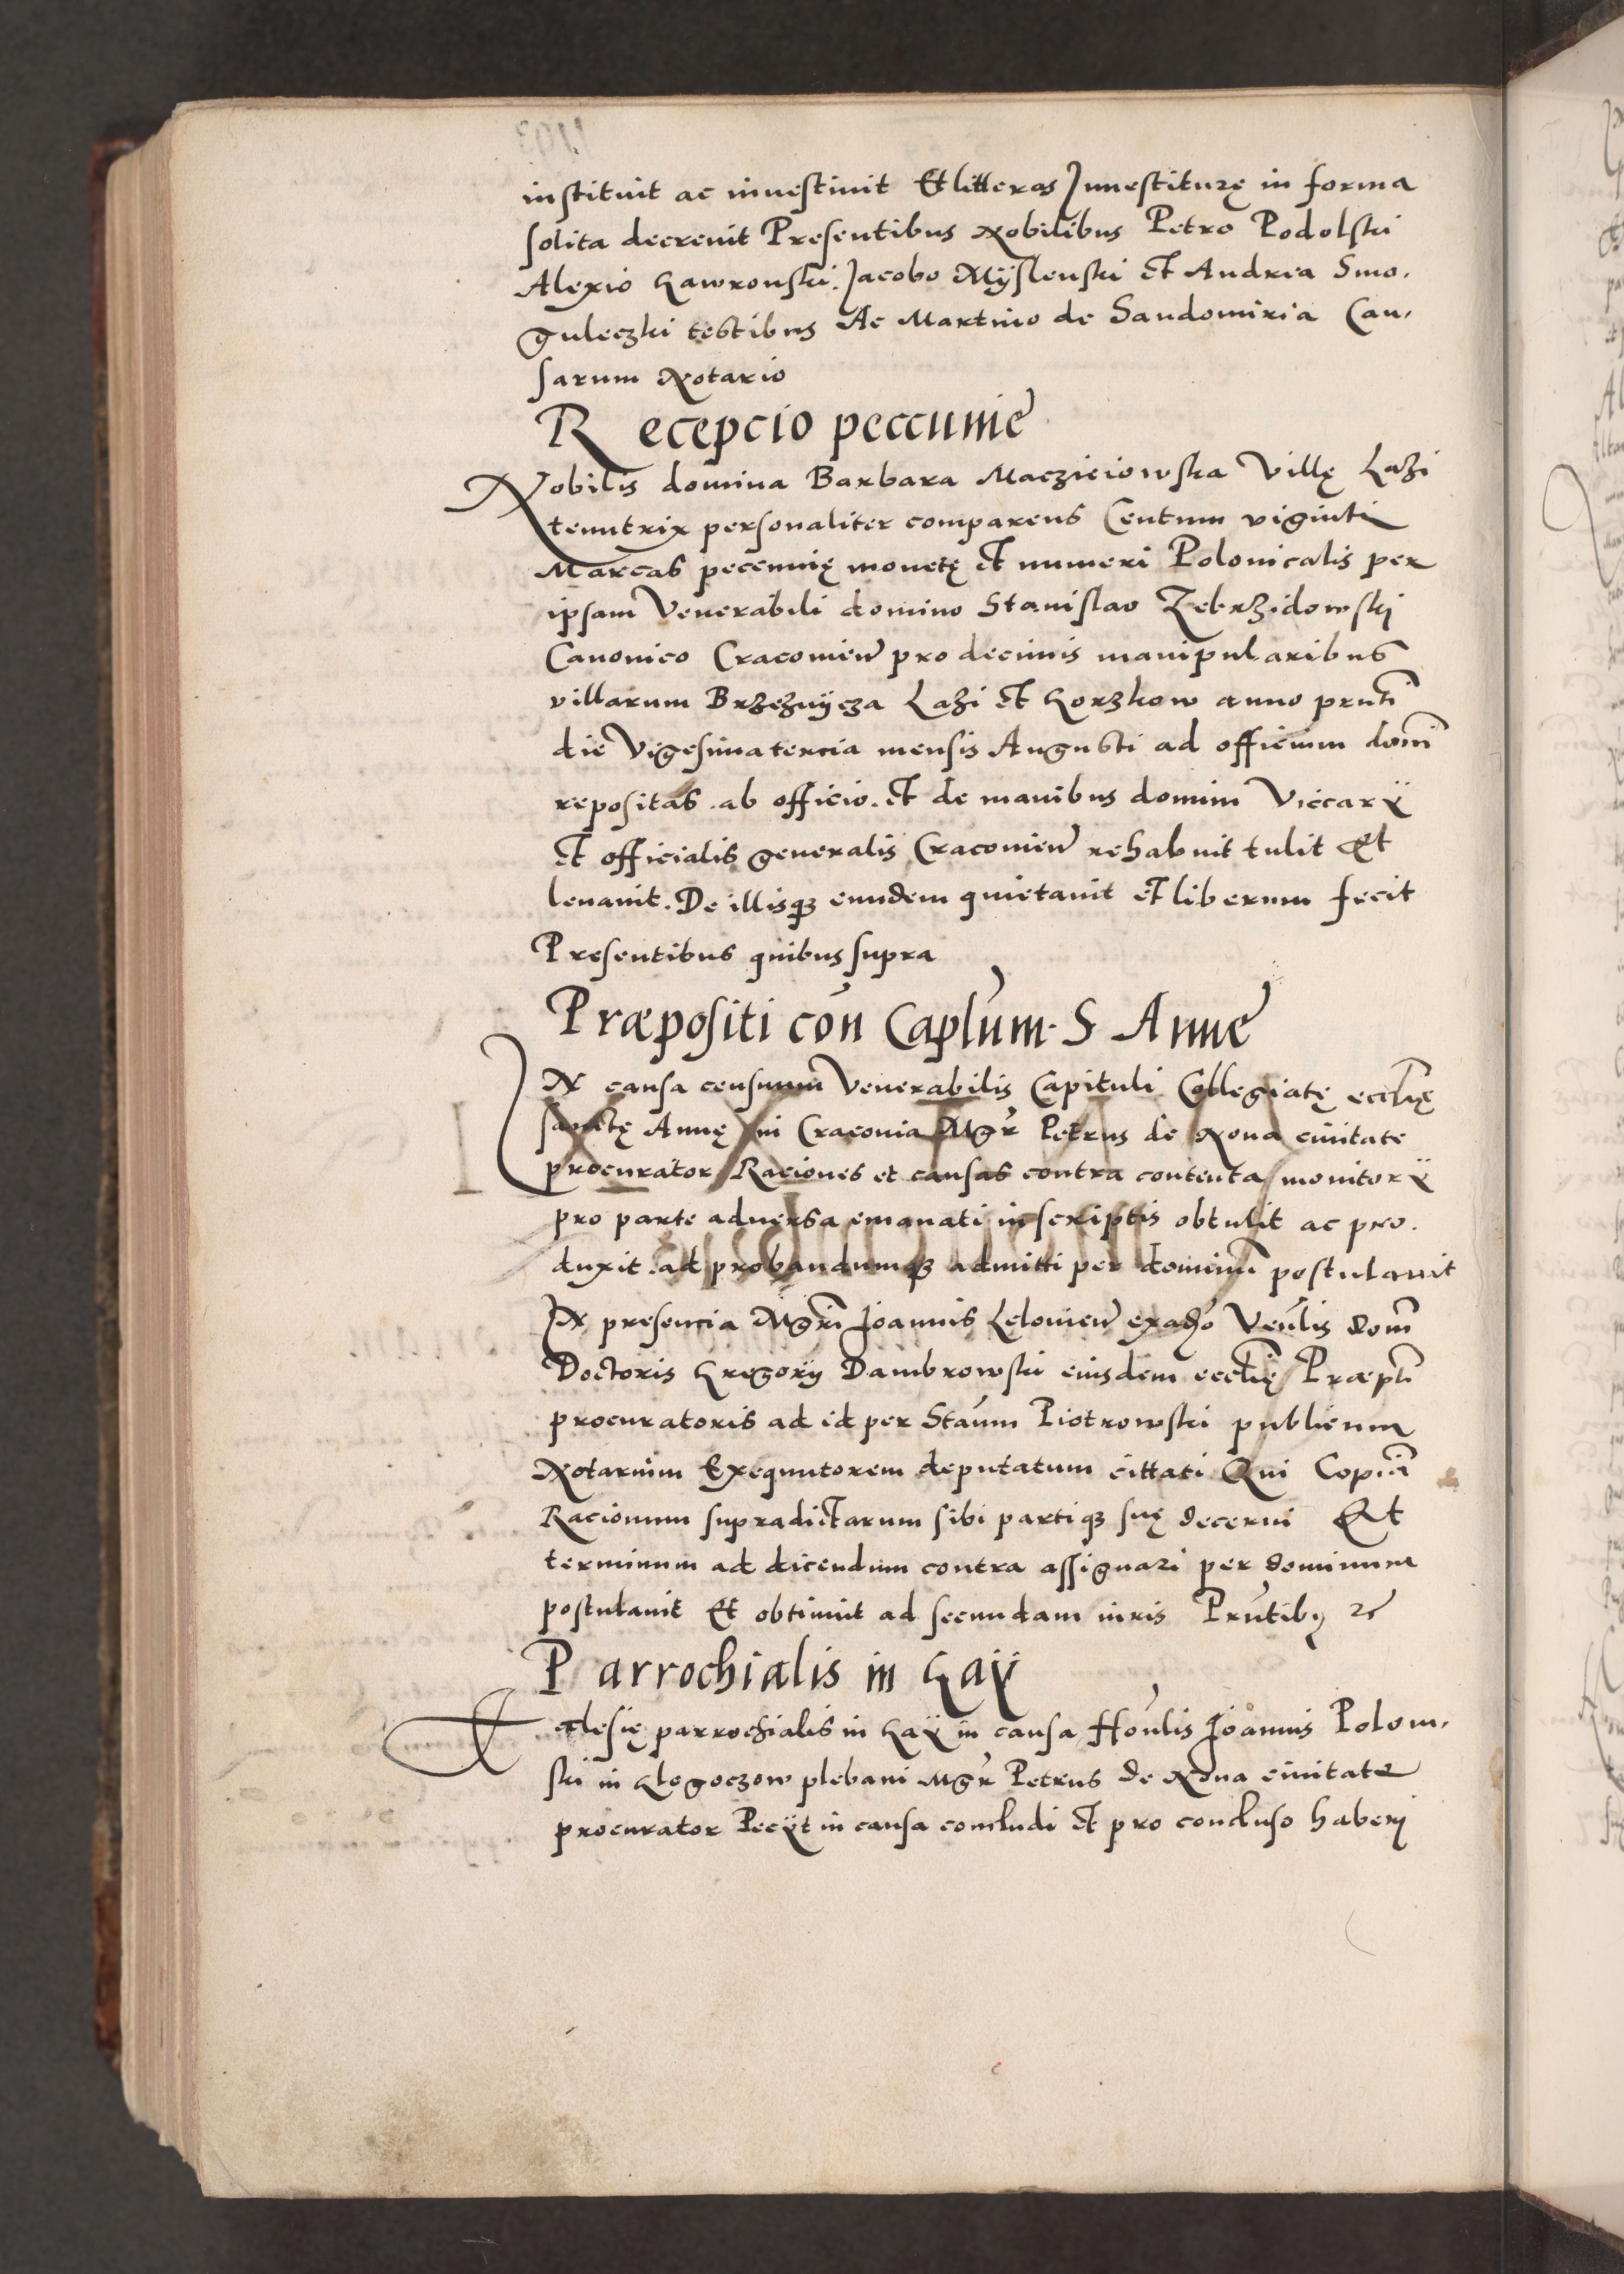 instituit ac inuestiuit Et litteras Inuestiturę in forma
solita decreuit Presentibus Nobilibus Petro Podolski
Alexio Gawronski. Jacobo Mÿslenski et Andrea Smo,
guleczki testibus Ac Martino de Sandomiria Cau,
sarum Notario
Recepcio peccunie
Nobilis domina Barbara Macziciowska Villę Lazi
tenutrix personaliter comparens Centum viginti
Marcas peccunię monetę et numeri Polonicalis per
ipsam Venerabili domino Stanislao Zebrzidowski
Canonico Cracouien̄ pro decimis manipularibus
villarum Brzeznÿcza Lazi et Gorzkow anno pn̄ti
die Vigesimatercia mensis Augusti ad officium domī
repositas. ab officio. et de manibus domini Viccarÿ
et officialis generalis Cracouien̄ rehabuit tulit Et
leuauit. De illisq₃ eundem quietauit et liberum fecit
Presentibus quibus supra
Præpositi cōn Caplūm. S Anne
IN causa censuum Venerabilis Capituli Collegiatę ecclīę
sanctę Annę in Cracouia Mgr̄ Petrus de Noua ciuitate
procurator Raciones et causas contra contenta monitorÿ
pro parte aduersa emanati in scriptis obtulit ac pro.
duxit. ad probandumq₃ admitti per dominū postulauit
IN presencia Mgrī Joannis Lelouien̄ Venl̄is dom̄
Doctoris Gregorÿ Dambrowski eiusdem ecclīę Præptī
procuratoris ad id per Staūm Piotrowski publicum
Notarium Exequutorem deputatum cittati Qui Copiā
Racionum supradictarum sibi partiq₃ suę decerni Et
terminum ad dicendum contra assignari per dominum
postulauit Et obtinuit ad secundam iuris Prn̄tibꝯ ꝛc
Parrochialis in Gaÿ
Ecclesię parrochialis in Gaÿ in causa Honl̄is Joannis Polom,
ski in Glogoczow plebani Mgr̄ Petrus de Noua ciuitate
procurator Peciÿt in causa concludi et pro concluso haberj